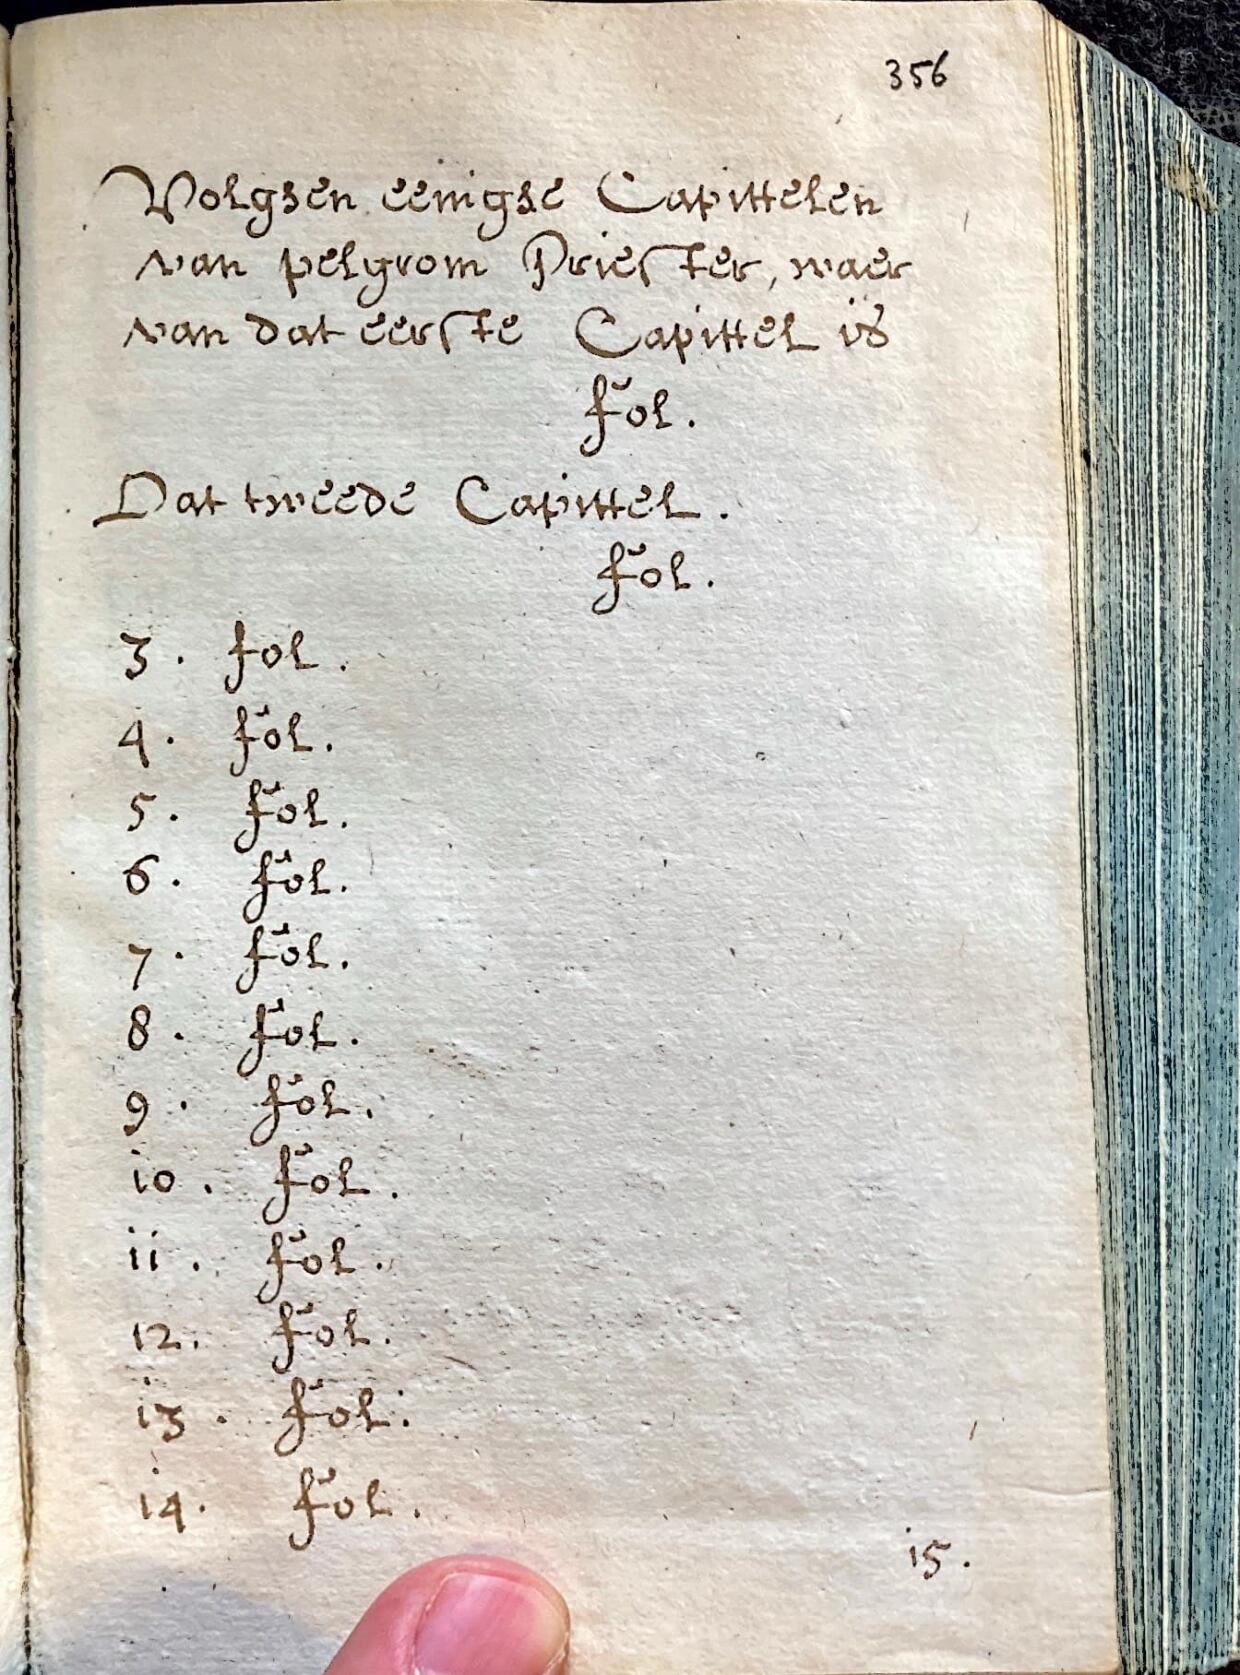 356
Volghen eenighe Capittelen
van pelgrom Priester, waer
van dat eerste Capittel is
fol.
Dat tweede Capittel.
fol.
3. fol.
4. fol.
5. fol.
6. fol.
7. fol.
8. fol.
9. fol.
io. fol.
ii. fol.
i2. fol.
i3. fol.
i4. fol.
i5.